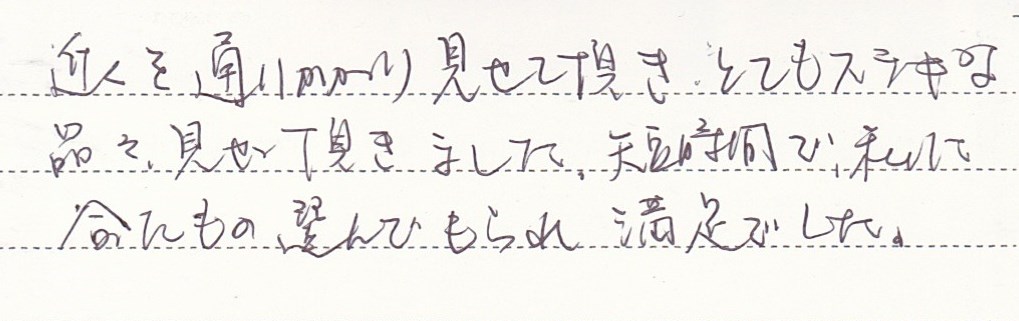 近くを通りかかり見せて頂き、とてもステキな
品々、見せて頂きました。短時間で、私に
合たもの選んでもらえ満足でした。